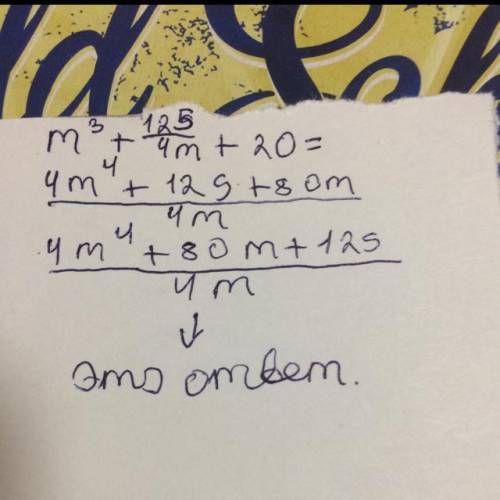 m³ + 125/4m + 20 =
4m⁴ + 125 + 80m
4m
4m⁴ + 80m + 125
4m
↓
это ответ.